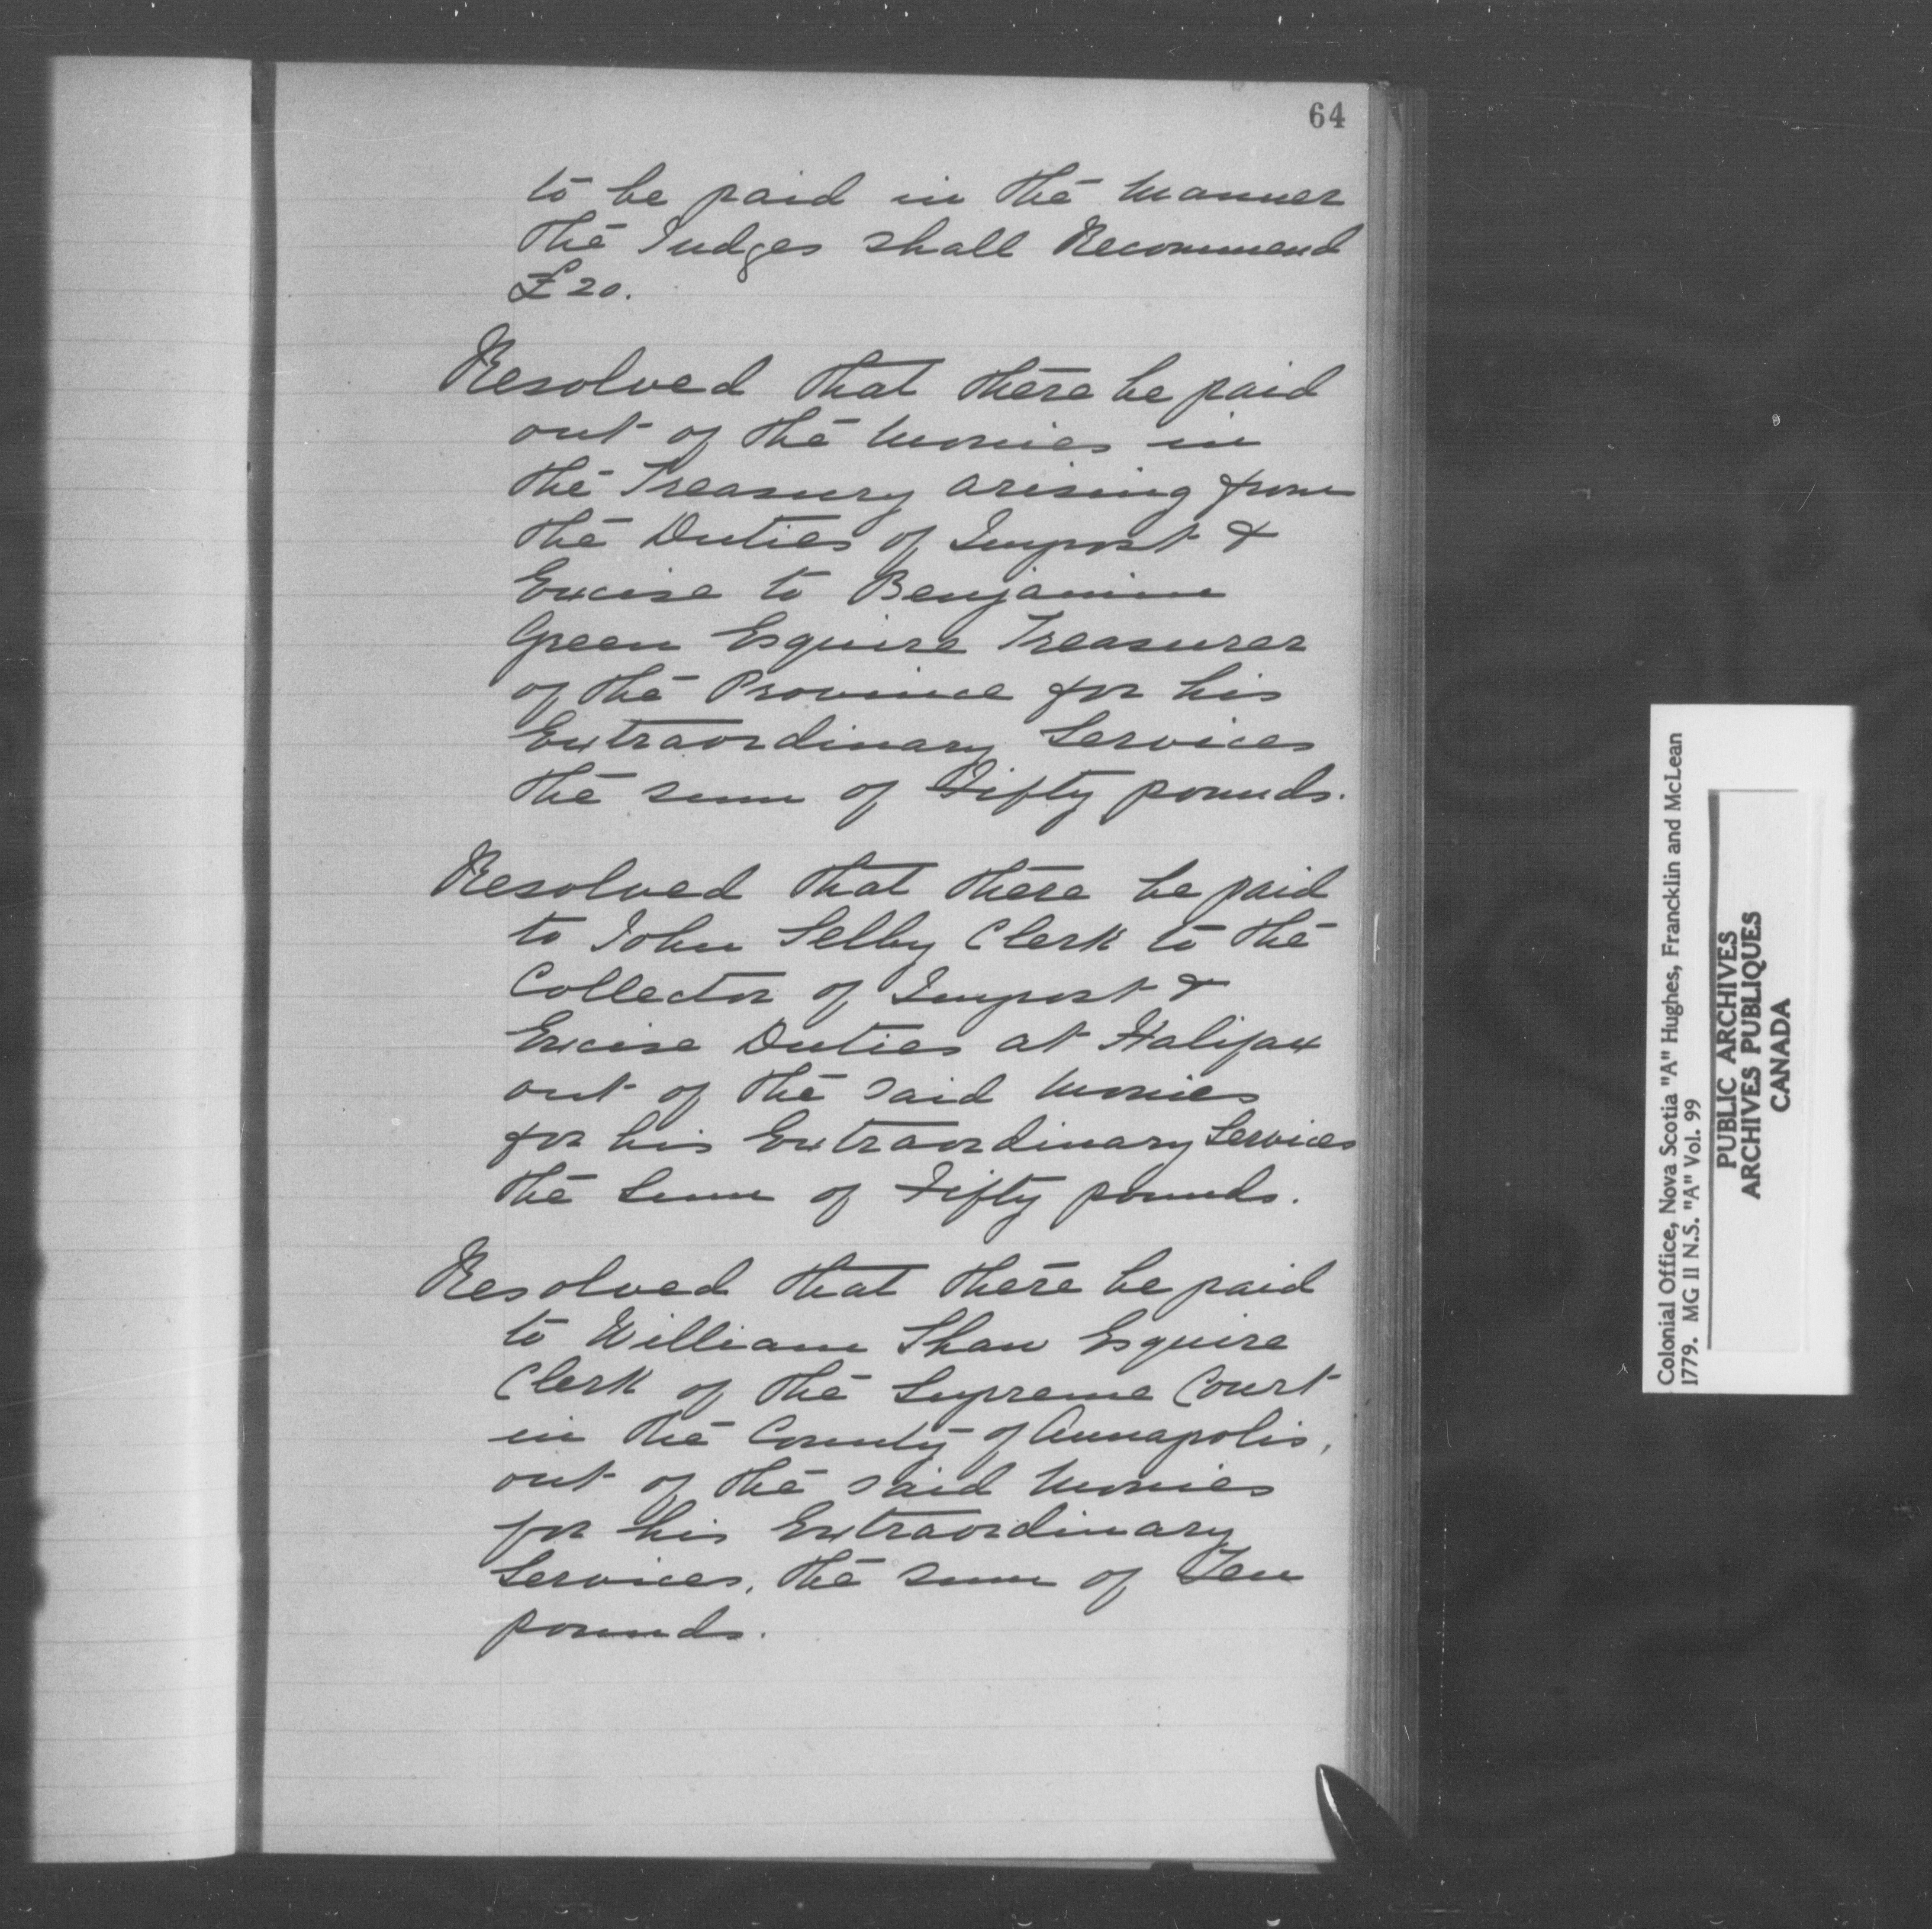 64
to be paid in the manner
the Judges shall Recommend
£20.
Resolved that there be paid
out of the monies in
the Treasury arising from
the Duties of Impost &
Excise to Benjamin
Green Esquire Treasurer
of the Province for his
Extraordinary Services
the sum of Fifty pounds.
Resolved that there be paid
to John Selby Clerk to the
Collector of Impost &
Excise Duties at Halifax
out of the said monies
for his Extraordinary Services
the Sum of Fifty pounds.
Resolved that there be paid
to William Shaw Esquire
Clerk of the Supreme Court
in the County of Annapolis,
out of the said monies
for his Extraordinary
Services, the sum of Ten
pounds.
Colonial Office, Nova Scotia "A" Hughes, Francklin and McLean
1779. MG 11 N.S. "A" Vol. 99
PUBLIC ARCHIVES
ARCHIVES PUBLIQUES
CANADA